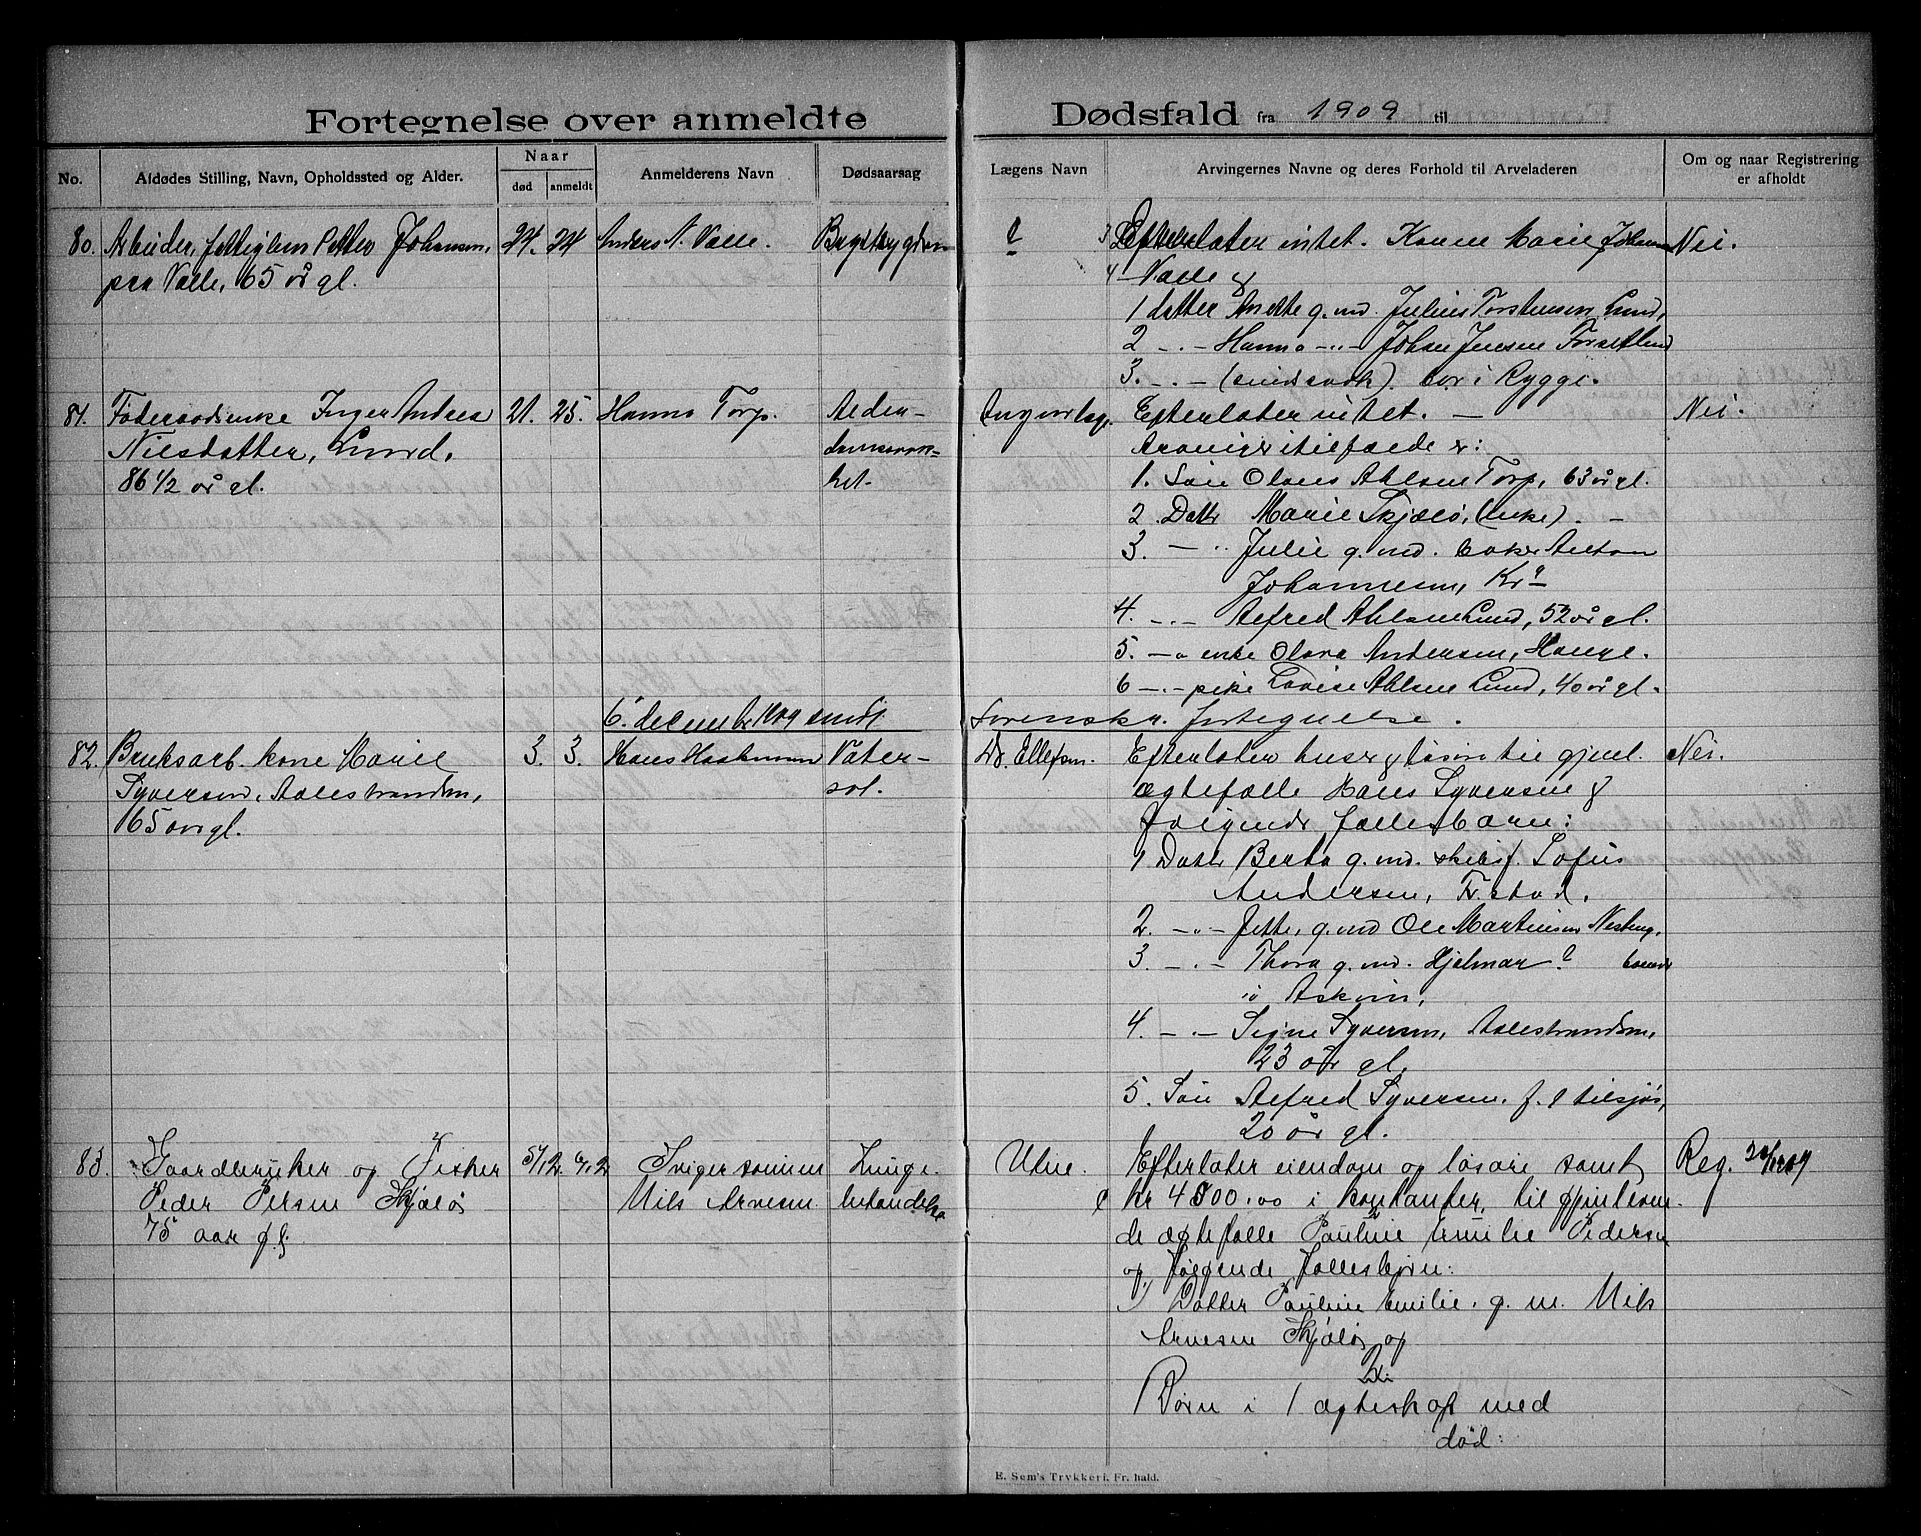 Fortegnelse over anmeldte Dødsfald fra 1909 til
No.
Afdødes Stilling, Navn, Opholdssted og Alder.
Naar
død
anmeldt
Anmelderens Navn
Dødsaarsag
Lægens Navn
Arvingernes Navne og deres Forhold til Arveladeren
Om og naar Registrering
er afholdt
80.
Arbeider, fattiglem Petter Johansen,
paa Valle, 65 år gl.
24. 24
Anders N. Valle.
?
Efterlater intet. Kone Marie Johansen
Valle &
1 datter Anette g. md. Julius Torstensen Lund,
2 -"- Hanna -"- Johan Jensen
3. -"- bor i Rygge.
Nei.
81.
Føderaadsenke Inger Andrea
Nilsdatter, Lund,
86 1/2 år gl.
21. 25.
Hanna Torp.
Alder-
domssvak-
het.
Efterlater intet. —
Arvinger i tilfælde er:
1. Søn Olaus Ahlsen Torp, 63 år gl.
2. Datter Marie Skjælø, (enke). -
3. -"- Julie g. md. Anton
Johannesen, Kra
4. -"- Alfred Ahlsen Lund, 52 år gl.
5. -"- enke Olava Andersen, Hauge.
6 -"- pike Lovise Ahlsen Lund, 40 år gl.
Nei.
6. december 1909 sendt Sorenskr. fortegnelse.
82.
Bruksarb. kone Marie
Syversen, Aalestranden,
65 år gl.
3. 3.
Hans Haakensen
Vater-
sot.
Dr. Ellefsen.
Efterlater huser & løsøre til gjenl.
ægtefælle Hans Syversen &
følgende fælles barn:
1 Datter Berta g. md. Sofus
Andersen, Fr.stad.
2. -"- Jette, g. md Ole Martinsen
3. -"- Thora g. md. Hjelmar ? boende
i Askim,
4. -"- Signe Syversen, Aalestranden,
23 år gl.
5. Søn Alfred Syversen. f. t tilsjøs,
20 år gl.
Nei.
83.
Gaardbruker og Fisker
Peder Persen Skjælø
75 aar gl.
5/12. 6/12
Svigersønnen
Nils Arvesen.
Utne.
Efterlater eiendom og løsøre samt
kr 4500.00 i kontanter, til gjenleven-
de ægtefælle Pauline Emilie Pedersen
og følgende fællesbørn:
1) Datter Pauline Emilie. g. m. Nils
Arvesen Skjælø og
Børn i 1 ægteskap med
død:
Reg.
E. Sem's Trykkeri, Fr. hald.